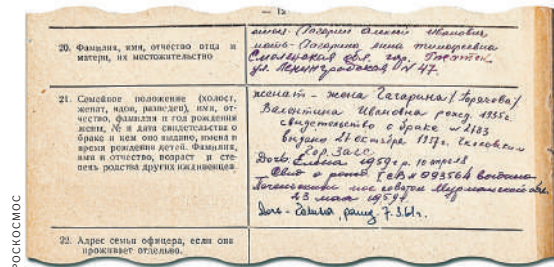 — 12
20. Фамилия, имя, отчество отца и
матери, их местожительство
отец-Гагарин Алексей Иванович
мать-Гагарина Анна Тимофеевна
Смоленская обл. гор. Гжатск
ул. Ленинградская № 47.
21. Семейное положение (холост,
женат, вдов, разведен), имя, от-
чество, фамилия и год рождения
жены, № и дата свидетельства о
браке и кем оно выдано, имена и
время рождения детей. Фамилия,
имя и отчество, возраст и сте-
пень родства других иждивенцев.
женат - жена Гагарина /Горячева/
Валентина Ивановна рожд. 1935г.
свидетельство о браке №
выдано октября 1957г.
Гор. Загс
Дочь: Елена 1959г.р. 10 апреля
Свид о рожд. 093564 выдано
пос советом Мурманской обл.
23 мая 1959г.
Дочь - Галина, 7.3.61г.
22. Адрес семьи офицера, если она
проживает отдельно.
РОСКОСМОС